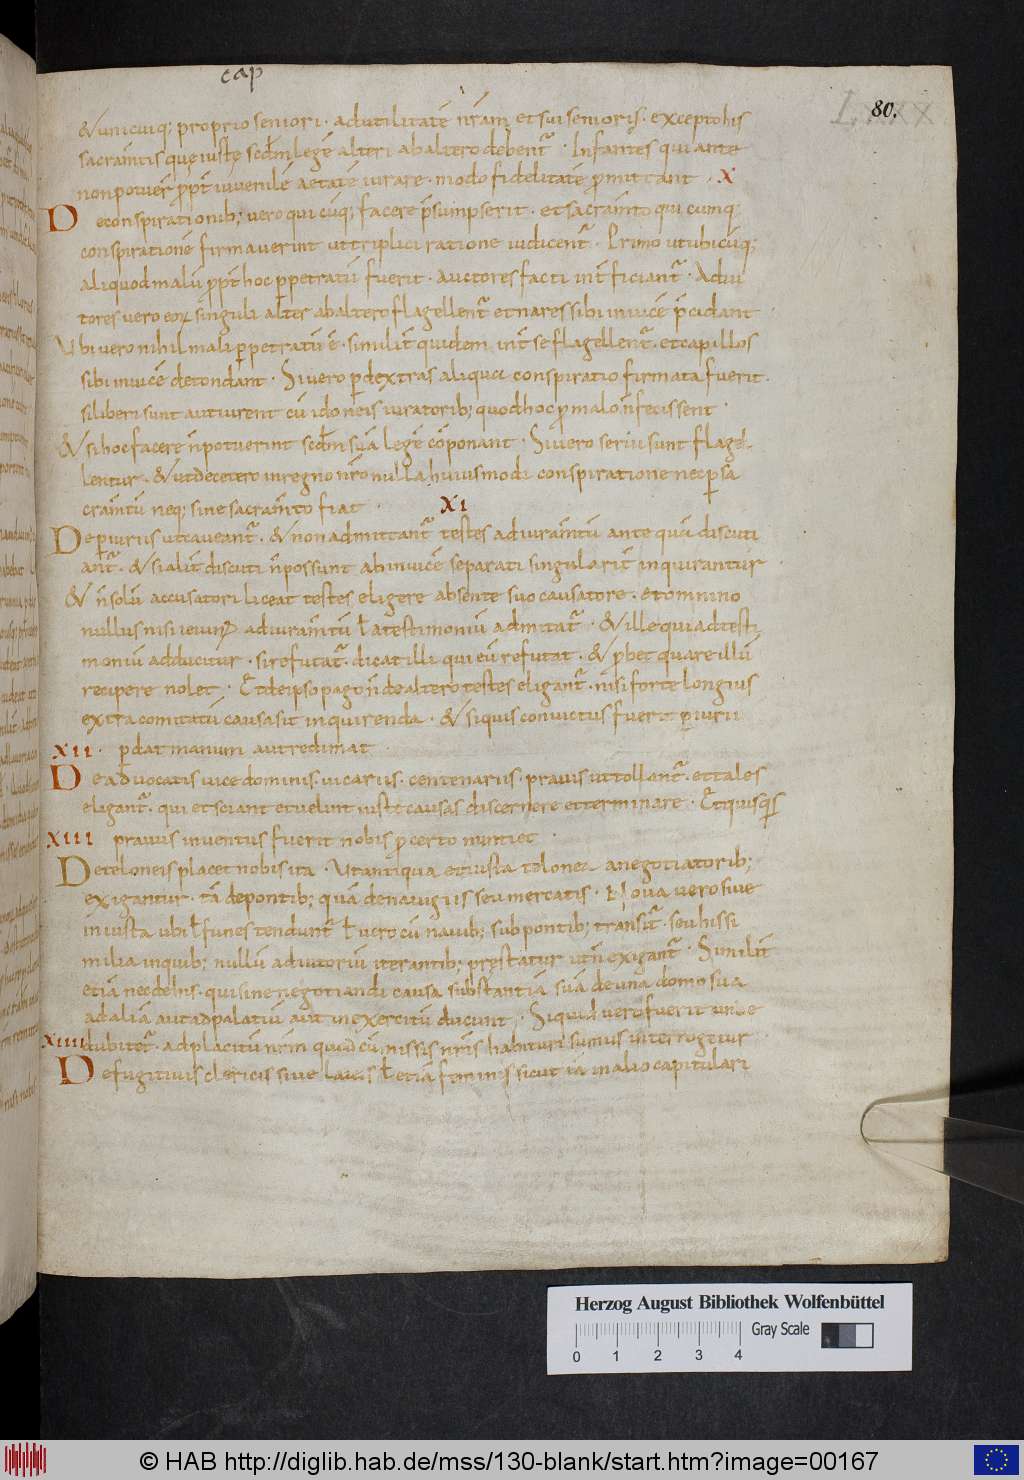 cap
80.
LXXX
& unicuiq; proprio seniori · ad utilitatē nr̄am et sui senioris · excepto his
sacram̄tis que iuste scdm̄ legē alteri ab altero debent̄ · Infantes qui ante
non potuer̄ ppt̄ iuvenilē aetatē iurare · modo fidelitatē pmittant · X
De conspirationib; vero qui cūq; facere p̄sumpserit · et sacram̄to qui cumq;
conspirationē firmaverint ut triplici ratione iudicent̄ · Primo ut ubicūq;
aliquod malū ppt̄ hoc ppetratū fuerit · auctores facti int̄ficiant̄ · Adiu
tores vero eoꝝ singuli alt̄ er ab altero flagellent̄ et nares sibi invicē p̄cidant
Ubi vero nihil mali ꝑpetratū ē · similit̄ quidem int̄ se flagellent̄ · et capillos
sibi invicē detondant · Si vero ꝑ dextras aliqua conspiratio firmata fuerit ·
si liberi sunt aut iurent cū idoneis iuratorib; quod hoc p malo n̄ fecissent ·
& si hoc facere n̄ potuerint scdm̄ suā legē cōponant · Si vero servi sunt flagel
lentur · & ut de cetero in regno nr̄o nulla huiusmodi conspiratione nec ꝑ sa
cram̄tū neq; sine sacram̄to fiat · XI
De ꝑiuriis ut caveant̄ · & non admittant̄ testes ad iuram̄tū ante quā discuti
ant̄ · & si alit̄ discuti n̄ possunt ab invicē separati singularit̄ inquirantur
& n̄ solū accusatori liceat testes eligere absente suo causatore · et omnino
nullus nisi ieiunꝰ ad iuram̄tū ł ad testimoniū admitat̄ · & ille qui ad testi
monium adducitur · si refutat̄ · dicat illi qui eū refutat · & pbet quare illū
recipere nolet · Et de ipso pago n̄ de altero testes eligant̄ · nisi forte longius
extra comitatū causa sit inquirenda · & si quis convictus fuerit ꝑiurii
XII · ꝑdat manum aut redimat ·
De advocatis vicedominis · vicariis · centenariis · pravis ut tollant̄ · et tales
eligant̄ · qui et sciant et velint iuste causas discernere et terminare · Et qui
XIII pravus inventus fuerit nobis p certo nuntiet ·
De teloneis placet nobis ita · Ut antiqua et iusta telonea a negotiatorib;
exigantur · tā de pontib; quā de navigiis seu mercatis · Nova vero sive
iniusta ubi ł funes tendunt̄ ł vero cū navib; sub pontib; transit̄ · seu his si
milia in quib; nullū adiutoriū iterantib; prestatur ut n̄ exigant̄ · Similit̄
etiā nec de his · qui sine negotiandi causa substantiā suā de una domo sua
ad aliā aut ad palatiū aut in exercitū ducunt · Si quid vero fuerit unde
XIIII dubitet̄ · ad placitū nr̄m quod cū missis nr̄is habituri sumus interrogetur
De fugitivis clericis sive laicis ł etiā feminis sicut iā in alio capitulari
Herzog August Bibliothek Wolfenbüttel
Gray Scale
0 1 2 3 4
© HAB http://diglib.hab.de/mss/130-blank/start.htm?image=00167